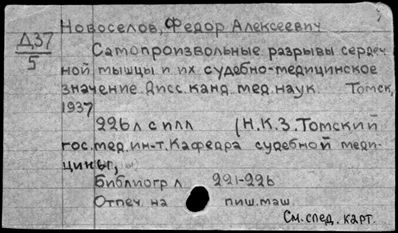 Новоселов, Федор Алексеевич
Д37
5
Самопроизвольные разрывы сердеч-
ной мышцы и их судебно-медицинское
значение. Дисс. канд. мед. наук. Томск,
1937
226 л с илл (Н.К.З. Томский
гос. мед. ин-т. Кафедра судебной меди-
цины,
Библиогр л. 221-226
Отпеч. на пиш. маш.
См. след. карт.